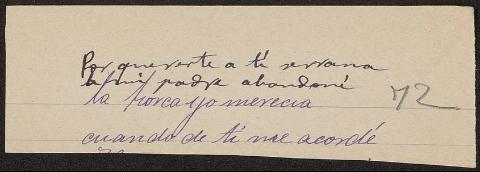 Por quererte a tí serrana
a mi padre abandoné
la horca yo merecia
72
cuando de tí me acordé